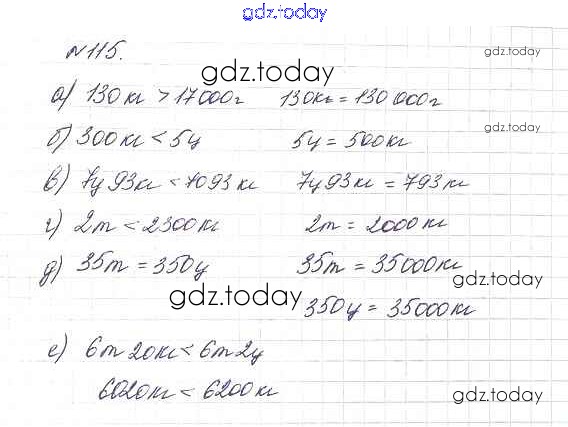 gdz.today
№115.
gdz.today
gdz.today
а) 130 кг > 17000г 130кг = 130 000г
б) 300кг < 5ц 5ц = 500кг
gdz.today
в) 7ц 93кг < 7093 кг 7ц 93кг = 793 кг
г) 2т < 2300кг 2т = 2000 кг
д) 35т = 350ц 35т = 35000кг
gdz.today
gdz.today
350ц = 35000кг
е) 6т 20кг < 6т 2ц
6020кг < 6200кг
gdz.today